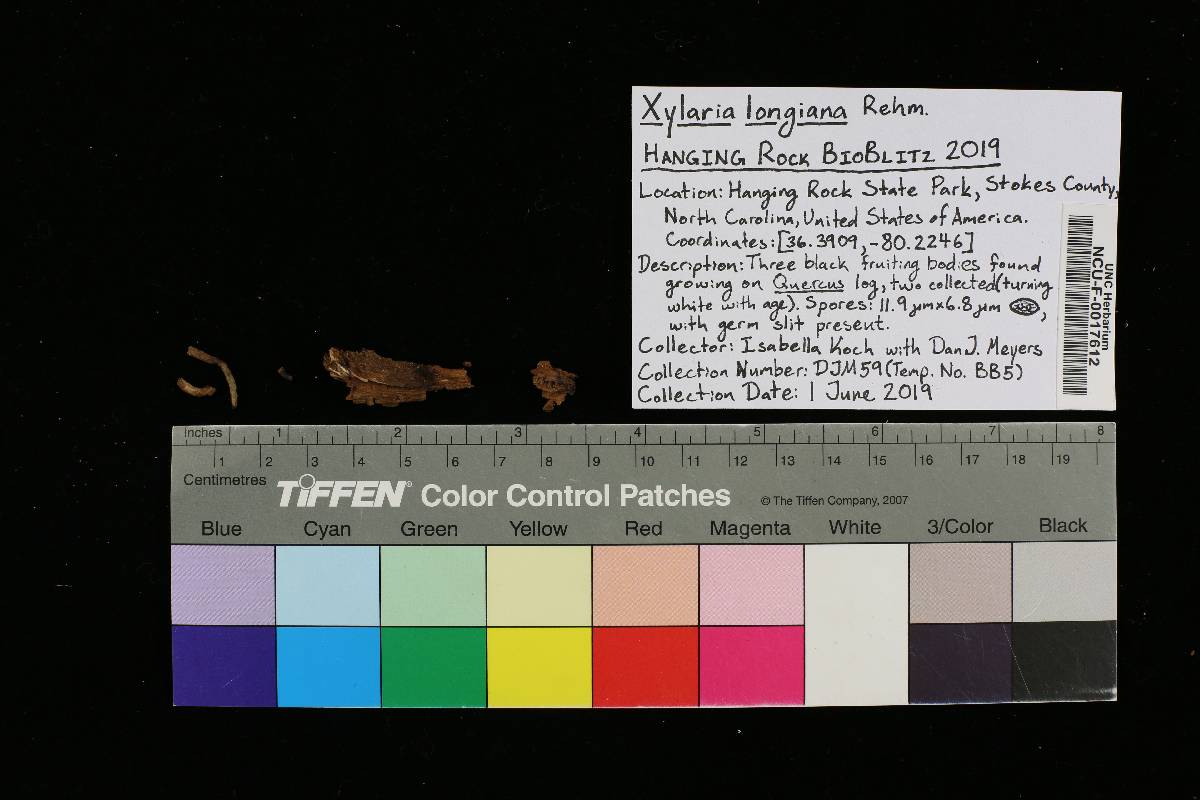 Xylaria longiana Rehm.
HANGING ROCK BIOBLITZ 2019
Location: Hanging Rock State Park, Stokes County,
North Carolina, United States of America.
Coordinates: [36.3909, -80.2246]
Description: Three black fruiting bodies found
growing on Quercus log, two collected (turning
white with age). Spores: 11.9 µm x 6.8 µm ,
with germ slit present.
Collector: Isabella Koch with Dan J. Meyers
Collection Number: DJM59 (Temp. No. BB5)
Collection Date: 1 June 2019
UNC Herbarium
NCU-F-0017612
Inches 1 2 3 4 5 6 7 8
1 2 3 4 5 6 7 8 9 10 11 12 13 14 15 16 17 18 19
Centimetres
TIFFEN® Color Control Patches © The Tiffen Company, 2007
Blue Cyan Green Yellow Red Magenta White 3/Color Black